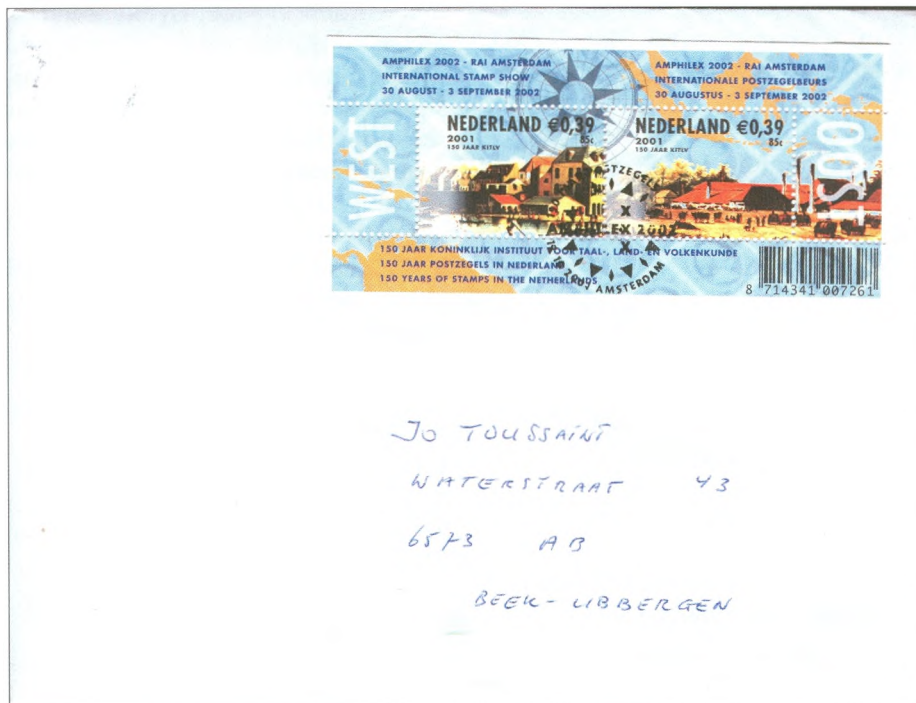 AMPHILEX 2002 - RAI AMSTERDAM
INTERNATIONAL STAMP SHOW
30 AUGUST - 3 SEPTEMBER 2002
AMPHILEX 2002 - RAI AMSTERDAM
INTERNATIONALE POSTZEGELBEURS
30 AUGUSTUS - 3 SEPTEMBER 2002
WEST
NEDERLAND €0,39
2001
85c
150 JAAR KITLV
NEDERLAND €0,39
2001
85c
150 JAAR KITLV
OOST
POSTZEGELS
AMPHILEX 2002
AMSTERDAM
150 JAAR KONINKLIJK INSTITUUT VOOR TAAL-, LAND- EN VOLKENKUNDE
150 JAAR POSTZEGELS IN NEDERLAND
150 YEARS OF STAMPS IN THE NETHERLANDS
8 714341 007261
JO TOUSSAINT
WATERSTRAAT 43
6573 AB
BEEK-UBBERGEN